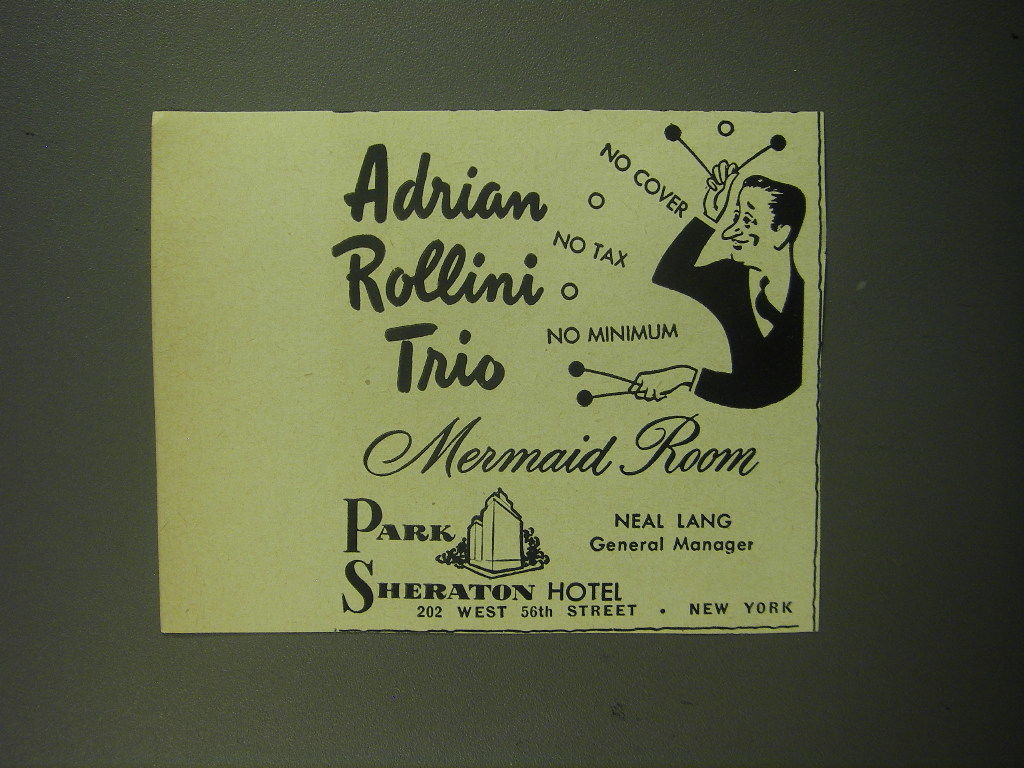 Adrian
Rollini
Trio
NO COVER
NO TAX
NO MINIMUM
Mermaid Room
PARK
SHERATON HOTEL
NEAL LANG
General Manager
202 WEST 56th STREET • NEW YORK